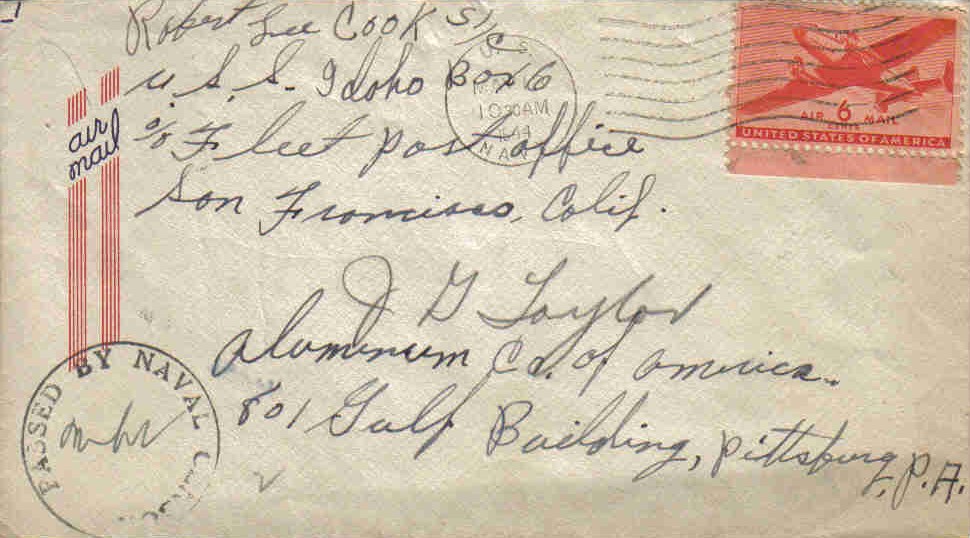 Robert Lee COOK S1/C
U.S.S. Idaho Box 6
c/o Fleet post office
San Francisco, Calif.
air
mail
U S
10 30 AM
1944
AIR 6 MAIL
CENTS
UNITED STATES OF AMERICA
J G Taylor
Aluminum Co. of America.
801 Gulf Building, Pittsburg, P.A.
PASSED BY NAVAL